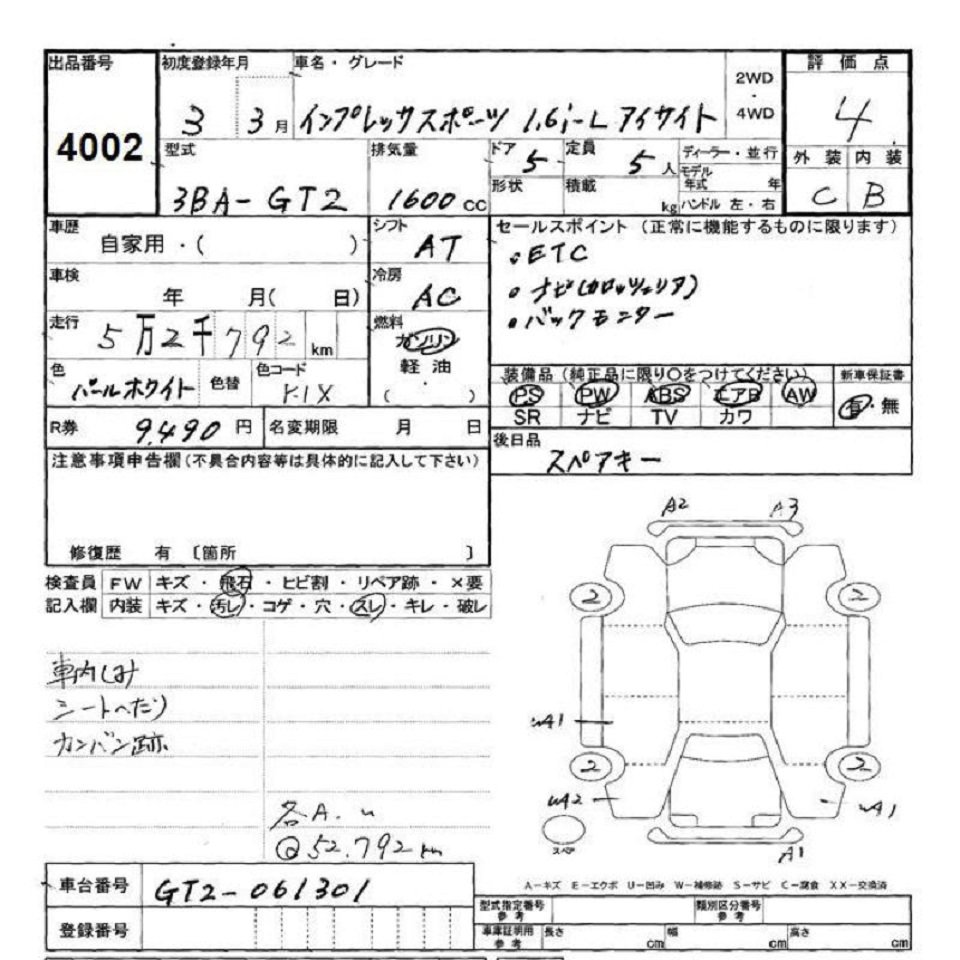 出品番号
4002
初度登録年月
3 3月
車名・グレード
インプレッサスポーツ 1.6i-L アイサイト
2WD
・
4WD
評価点
4
外装 内装
C B
型式
3BA-GT2
排気量
1600cc
ドア 5
形状
定員 5人
積載 kg
ディーラー・並行
モデル年式 年
ハンドル 左・右
車歴
自家用・( )
シフト
AT
車検
年 月( 日)
冷房
AC
走行
5万2千792 km
燃料
ガソリン
軽油
( ・ )
色
パールホワイト
色替
色コード
K1X
R券 9,490円
名変期限 月 日
セールスポイント (正常に機能するものに限ります)
・ETC
・ナビ(カロッツェリア)
・バックモニター
装備品 (純正品に限り○をつけてください)
PS PW ABS エアB AW
SR ナビ TV カワ
新車保証書
有・無
後日品
スペアキー
注意事項申告欄(不具合内容等は具体的に記入して下さい)
修復歴 有 〔箇所 〕
検査員 FW キズ・飛石・ヒビ割・リペア跡・×要
記入欄 内装 キズ・汚レ・コゲ・穴・スレ・キレ・破レ
車内しみ
シートへたり
カンバン跡
各A.u
@52,792km
A2 A3
2 2
uA1
2 2
uA2 uA1
スペア
A1
A-キズ E-エクボ U-凹み W-補修跡 S-サビ C-腐食 XX-交換済
車台番号 GT2-061301
登録番号
型式指定番号
参考
類別区分番号
参考
車庫証明用
参考
長さ cm
幅 cm
高さ cm